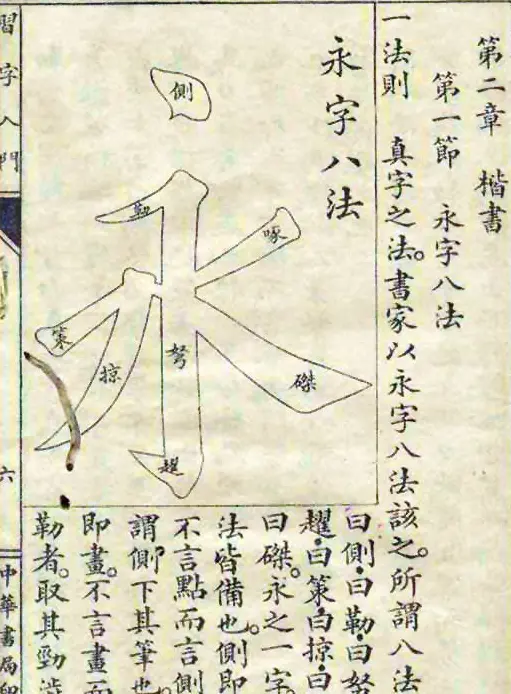 第二章　楷書
第一節　永字八法
一法則　真字之法。書家以永字八法該之。所謂八法
永字八法
側
勒
啄
策
掠
弩
磔
趯
曰側曰勒曰努
趯曰策曰掠曰
曰磔。永之一字
法皆備也。側即
不言點而言側
謂側下其筆也
即畫。不言畫而
勒者。取其勁澁
習字入門
六
中華書局印